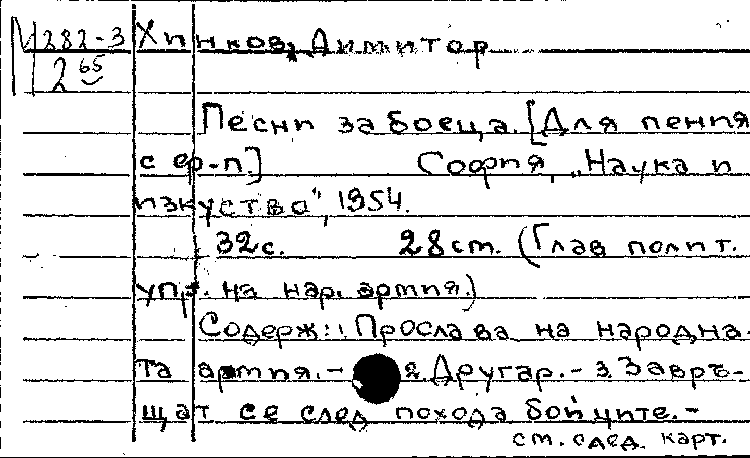 М 282-3 Хинков, Димитор
2 65
Песни за боеца. [Для пения
с ф-п.] София, „Наука и
изкуства", 1954.
32с. 28см. (Глав полит.
упр. на нар. армия.)
Содерж.: 1. Прослава на народна-
та армия. - 2. Другар. - 3. Завръ-
щат се след похода бойците. -
см. след. карт.